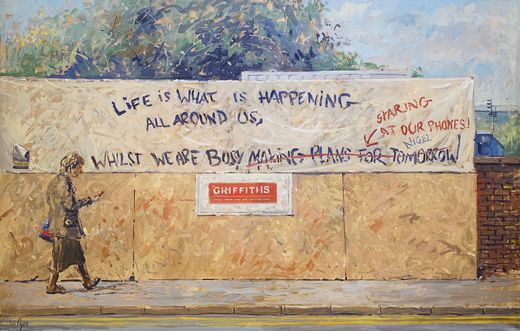 LiFE iS WHAT iS HAPPENiNG
ALL AROUND US,
STARING
AT OUR PHONES!
NIGEL
WHILST WE ARE BUSY MAKING PLANS FOR TOMORROW
GRIFFITHS